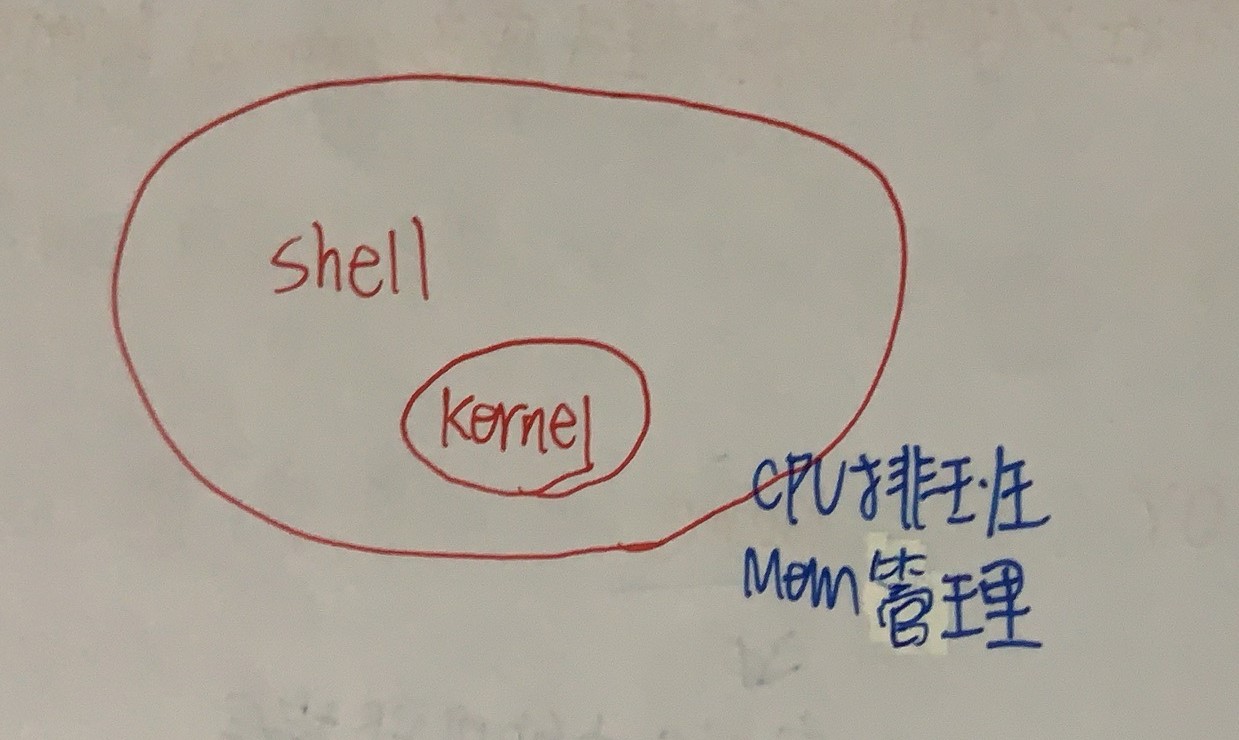 shell
kernel
CPU排班
Mem管理